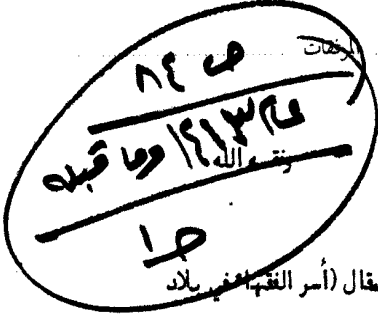 المرفقات
ص ٨٤
عام ١٤١٣ وما قبله
وفقه الله
ح ١
مقال (أسر الفقهاء في بلاد